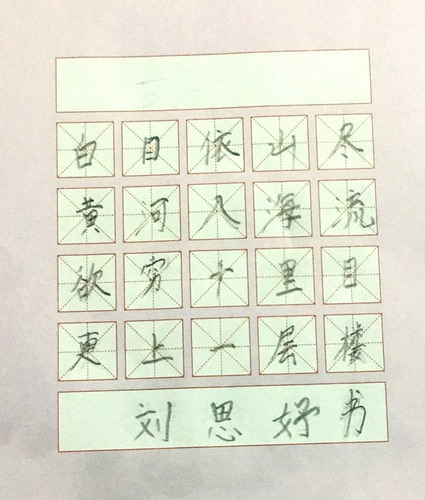 白日依山尽
黄河入海流
欲穷千里目
更上一层楼
刘思妤书